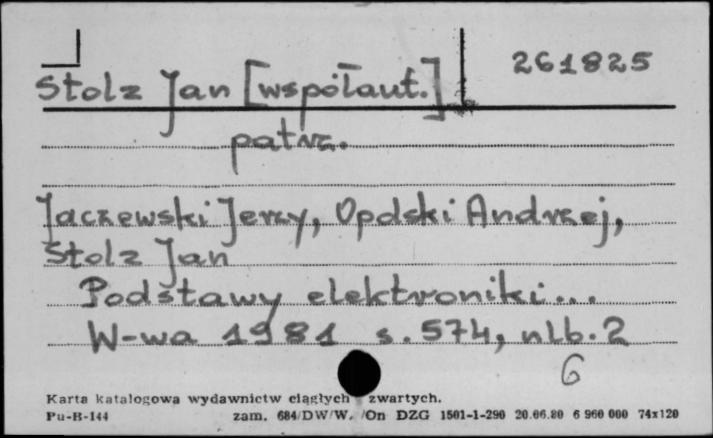 261825
Stolz Jan [współaut.]
patrz.
Jaczewski Jerzy, Opolski Andrzej,
Stolz Jan
Podstawy elektroniki...
W-wa 1981 s. 574, nlb. 2
6
Karta katalogowa wydawnictw ciągłych i zwartych.
Pu-B-144 zam. 684/DW/W. /On DZG 1501-1-290 20.06.80 6 960 000 74x120